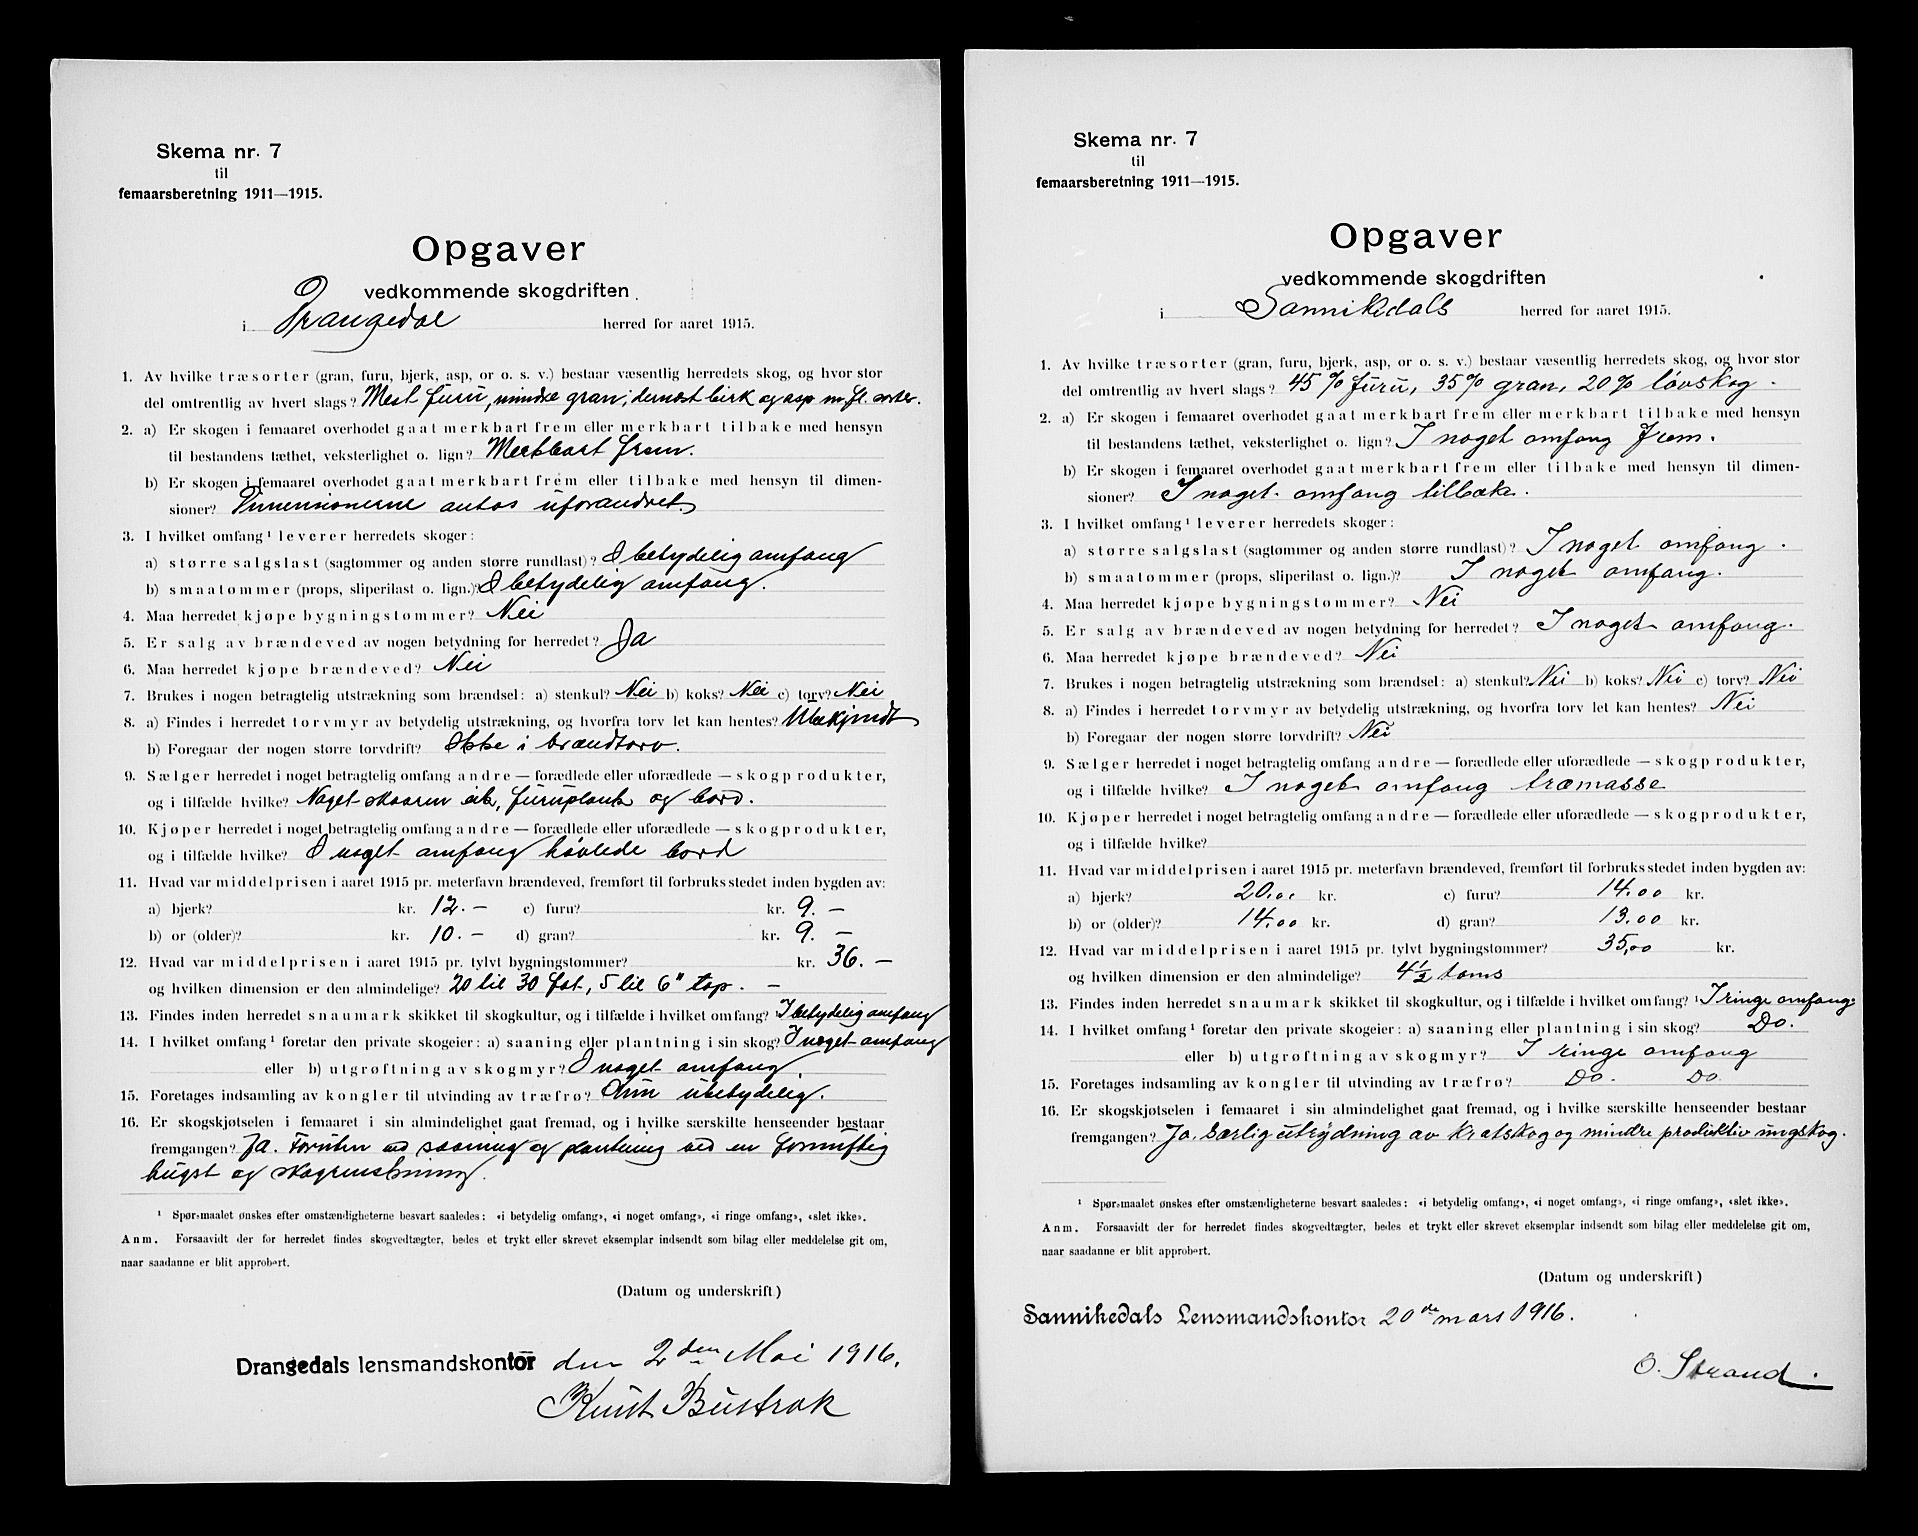 Skema nr. 7
til
femaarsberetning 1911—1915.
Opgaver
vedkommende skogdriften
i Drangedal herred for aaret 1915.
1. Av hvilke træsorter (gran, furu, bjerk, asp, or o. s. v.) bestaar væsentlig herredets skog, og hvor stor
del omtrentlig av hvert slags? Mest furu, mindre gran; dernæst birk og asp m. fl. sorter.
2. a) Er skogen i femaaret overhodet gaat merkbart frem eller merkbart tilbake med hensyn
til bestandens tæthet, veksterlighet o. lign.? Merkbart frem.
b) Er skogen i femaaret overhodet gaat merkbart frem eller tilbake med hensyn til dimen-
sioner? Dimensionerne antas uforandret.
3. I hvilket omfang¹ leverer herredets skoger:
a) større salgslast (sagtømmer og anden større rundlast)? I betydelig omfang
b) smaatømmer (props, sliperilast o. lign.)? I betydelig omfang.
4. Maa herredet kjøpe bygningstømmer? Nei
5. Er salg av brændeved av nogen betydning for herredet? Ja
6. Maa herredet kjøpe brændeved? Nei
7. Brukes i nogen betragtelig utstrækning som brændsel: a) stenkul? Nei b) koks? Nei c) torv? Nei
8. a) Findes i herredet torvmyr av betydelig utstrækning, og hvorfra torv let kan hentes? Ubekjendt
b) Foregaar der nogen større torvdrift? Ikke i brændtorv.
9. Sælger herredet i noget betragtelig omfang andre — forædlede eller uforædlede — skogprodukter,
og i tilfælde hvilke? Noget skaaren eik, furuplank og bord.
10. Kjøper herredet i noget betragtelig omfang andre — forædlede eller uforædlede — skogprodukter,
og i tilfælde hvilke? I noget omfang høvlede bord
11. Hvad var middelprisen i aaret 1915 pr. meterfavn brændeved, fremført til forbruksstedet inden bygden av:
a) bjerk? kr. 12.— c) furu? kr. 9.—
b) or (older)? kr. 10.— d) gran? kr. 9.—
12. Hvad var middelprisen i aaret 1915 pr. tylvt bygningstømmer? kr. 36.—
og hvilken dimension er den almindelige? 20 til 30 fot, 5 til 6" top. —
13. Findes inden herredet snaumark skikket til skogkultur, og i tilfælde i hvilket omfang? I betydelig omfang
14. I hvilket omfang¹ foretar den private skogeier: a) saaning eller plantning i sin skog? I noget omfang
eller b) utgrøftning av skogmyr? I noget omfang.
15. Foretages indsamling av kongler til utvinding av træfrø? Kun ubetydelig.
16. Er skogskjøtselen i femaaret i sin almindelighet gaat fremad, og i hvilke særskilte henseender bestaar
fremgangen? Ja. Foruten ved saaning og plantning ved en fornuftig
hugst og skogrenskning.
¹ Spørsmaalet ønskes efter omstændigheterne besvart saaledes: «i betydelig omfang», «i noget omfang», «i ringe omfang», «slet ikke».
Anm. Forsaavidt der for herredet findes skogvedtægter, bedes et trykt eller skrevet eksemplar indsendt som bilag eller meddelelse git om,
naar saadanne er blit approbert.
(Datum og underskrift)
Drangedals lensmandskontor den 2den Mai 1916.
Knut Bustrak
Skema nr. 7
til
femaarsberetning 1911—1915.
Opgaver
vedkommende skogdriften
i Sannikedals herred for aaret 1915.
1. Av hvilke træsorter (gran, furu, bjerk, asp, or o. s. v.) bestaar væsentlig herredets skog, og hvor stor
del omtrentlig av hvert slags? 45 % furu, 35 % gran, 20 % løvskog.
2. a) Er skogen i femaaret overhodet gaat merkbart frem eller merkbart tilbake med hensyn
til bestandens tæthet, veksterlighet o. lign.? I noget omfang frem.
b) Er skogen i femaaret overhodet gaat merkbart frem eller tilbake med hensyn til dimen-
sioner? I noget omfang tilbake.
3. I hvilket omfang¹ leverer herredets skoger:
a) større salgslast (sagtømmer og anden større rundlast)? I noget omfang.
b) smaatømmer (props, sliperilast o. lign.)? I noget omfang.
4. Maa herredet kjøpe bygningstømmer? Nei
5. Er salg av brændeved av nogen betydning for herredet? I noget omfang.
6. Maa herredet kjøpe brændeved? Nei
7. Brukes i nogen betragtelig utstrækning som brændsel: a) stenkul? Nei b) koks? Nei c) torv? Nei
8. a) Findes i herredet torvmyr av betydelig utstrækning, og hvorfra torv let kan hentes? Nei
b) Foregaar der nogen større torvdrift? Nei
9. Sælger herredet i noget betragtelig omfang andre — forædlede eller uforædlede — skogprodukter,
og i tilfælde hvilke? I noget omfang træmasse
10. Kjøper herredet i noget betragtelig omfang andre — forædlede eller uforædlede — skogprodukter,
og i tilfælde hvilke?
11. Hvad var middelprisen i aaret 1915 pr. meterfavn brændeved, fremført til forbruksstedet inden bygden av:
a) bjerk? 20.00 kr. c) furu? 14.00 kr.
b) or (older)? 14.00 kr. d) gran? 13.00 kr.
12. Hvad var middelprisen i aaret 1915 pr. tylvt bygningstømmer? 35,00 kr.
og hvilken dimension er den almindelige? 4½ toms
13. Findes inden herredet snaumark skikket til skogkultur, og i tilfælde i hvilket omfang? I ringe omfang.
14. I hvilket omfang¹ foretar den private skogeier: a) saaning eller plantning i sin skog? Do.
eller b) utgrøftning av skogmyr? I ringe omfang
15. Foretages indsamling av kongler til utvinding av træfrø? Do. Do
16. Er skogskjøtselen i femaaret i sin almindelighet gaat fremad, og i hvilke særskilte henseender bestaar
fremgangen? Ja. Særlig utrydning av kratskog og mindre produktiv ungskog.
¹ Spørsmaalet ønskes efter omstændigheterne besvart saaledes: «i betydelig omfang», «i noget omfang», «i ringe omfang», «slet ikke».
Anm. Forsaavidt der for herredet findes skogvedtægter, bedes et trykt eller skrevet eksemplar indsendt som bilag eller meddelelse git om,
naar saadanne er blit approbert.
(Datum og underskrift)
Sannikedals Lensmandskontor 20de mars 1916.
O. Strand.